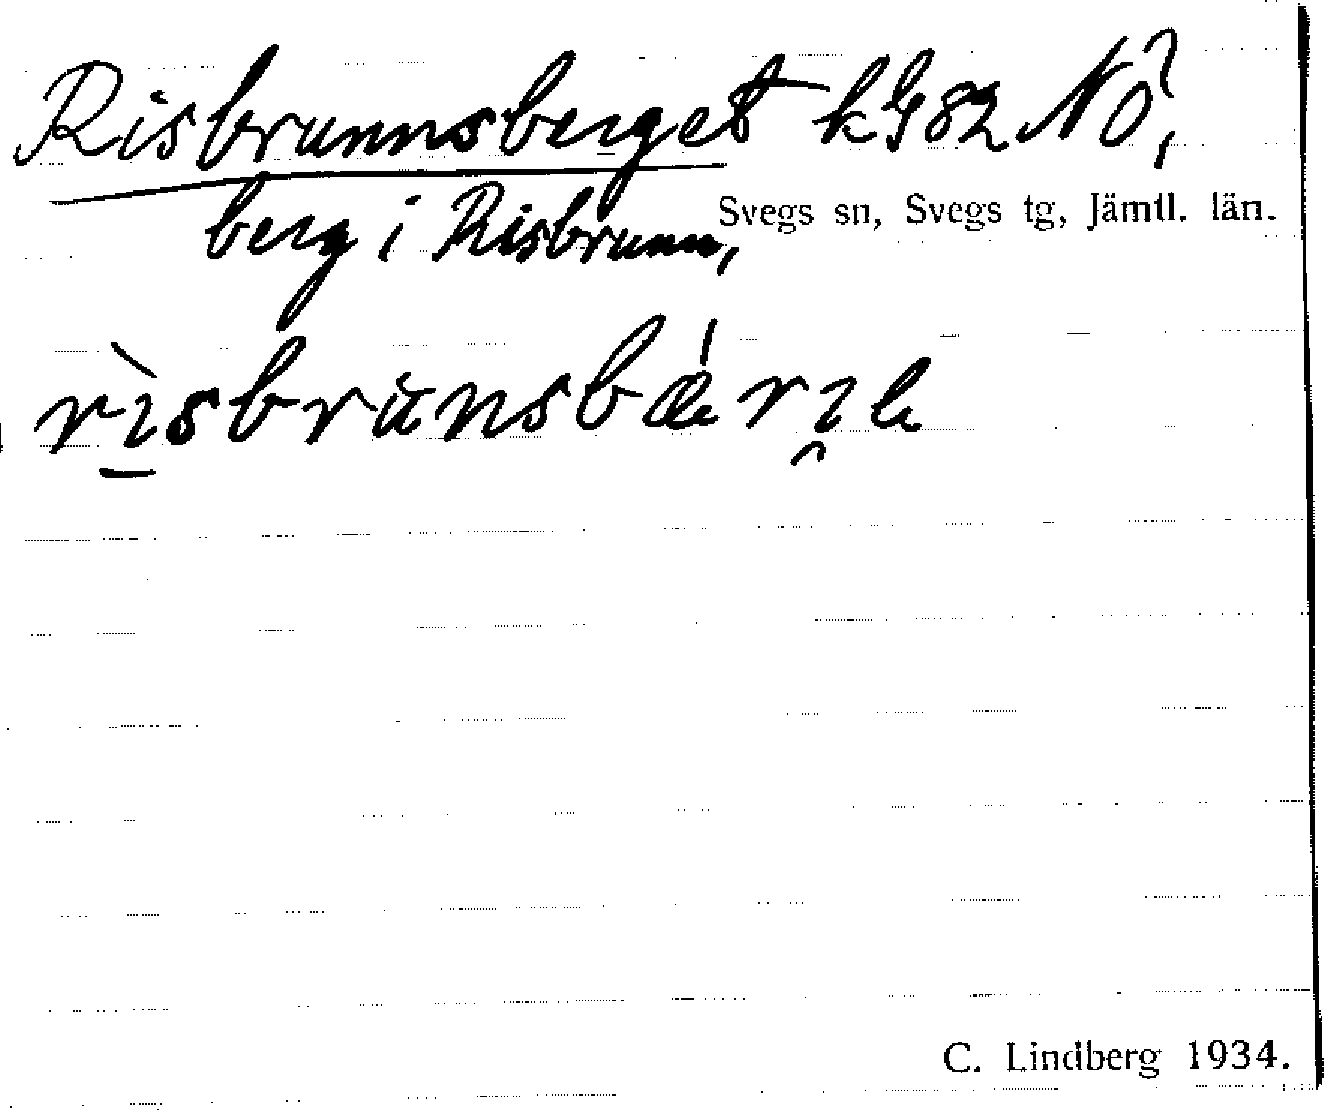 Risbrunnsberget kG82 NÖ?,
berg i Risbrunn, Svegs sn, Svegs tg, Jämtl. län.
C. Lindberg 1934.